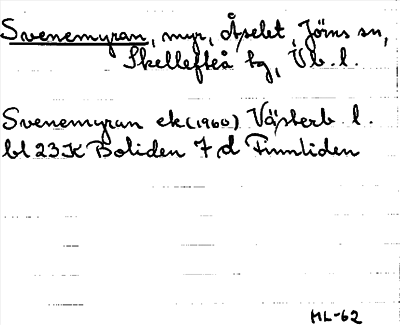 Svenemyran, myr, Åselet, Jörns sn,
Skellefteå tg, Vb. l.
Svenemyran ek (1960) Västerb l.
bl 23 K Boliden 7 d Finnliden
HL-62